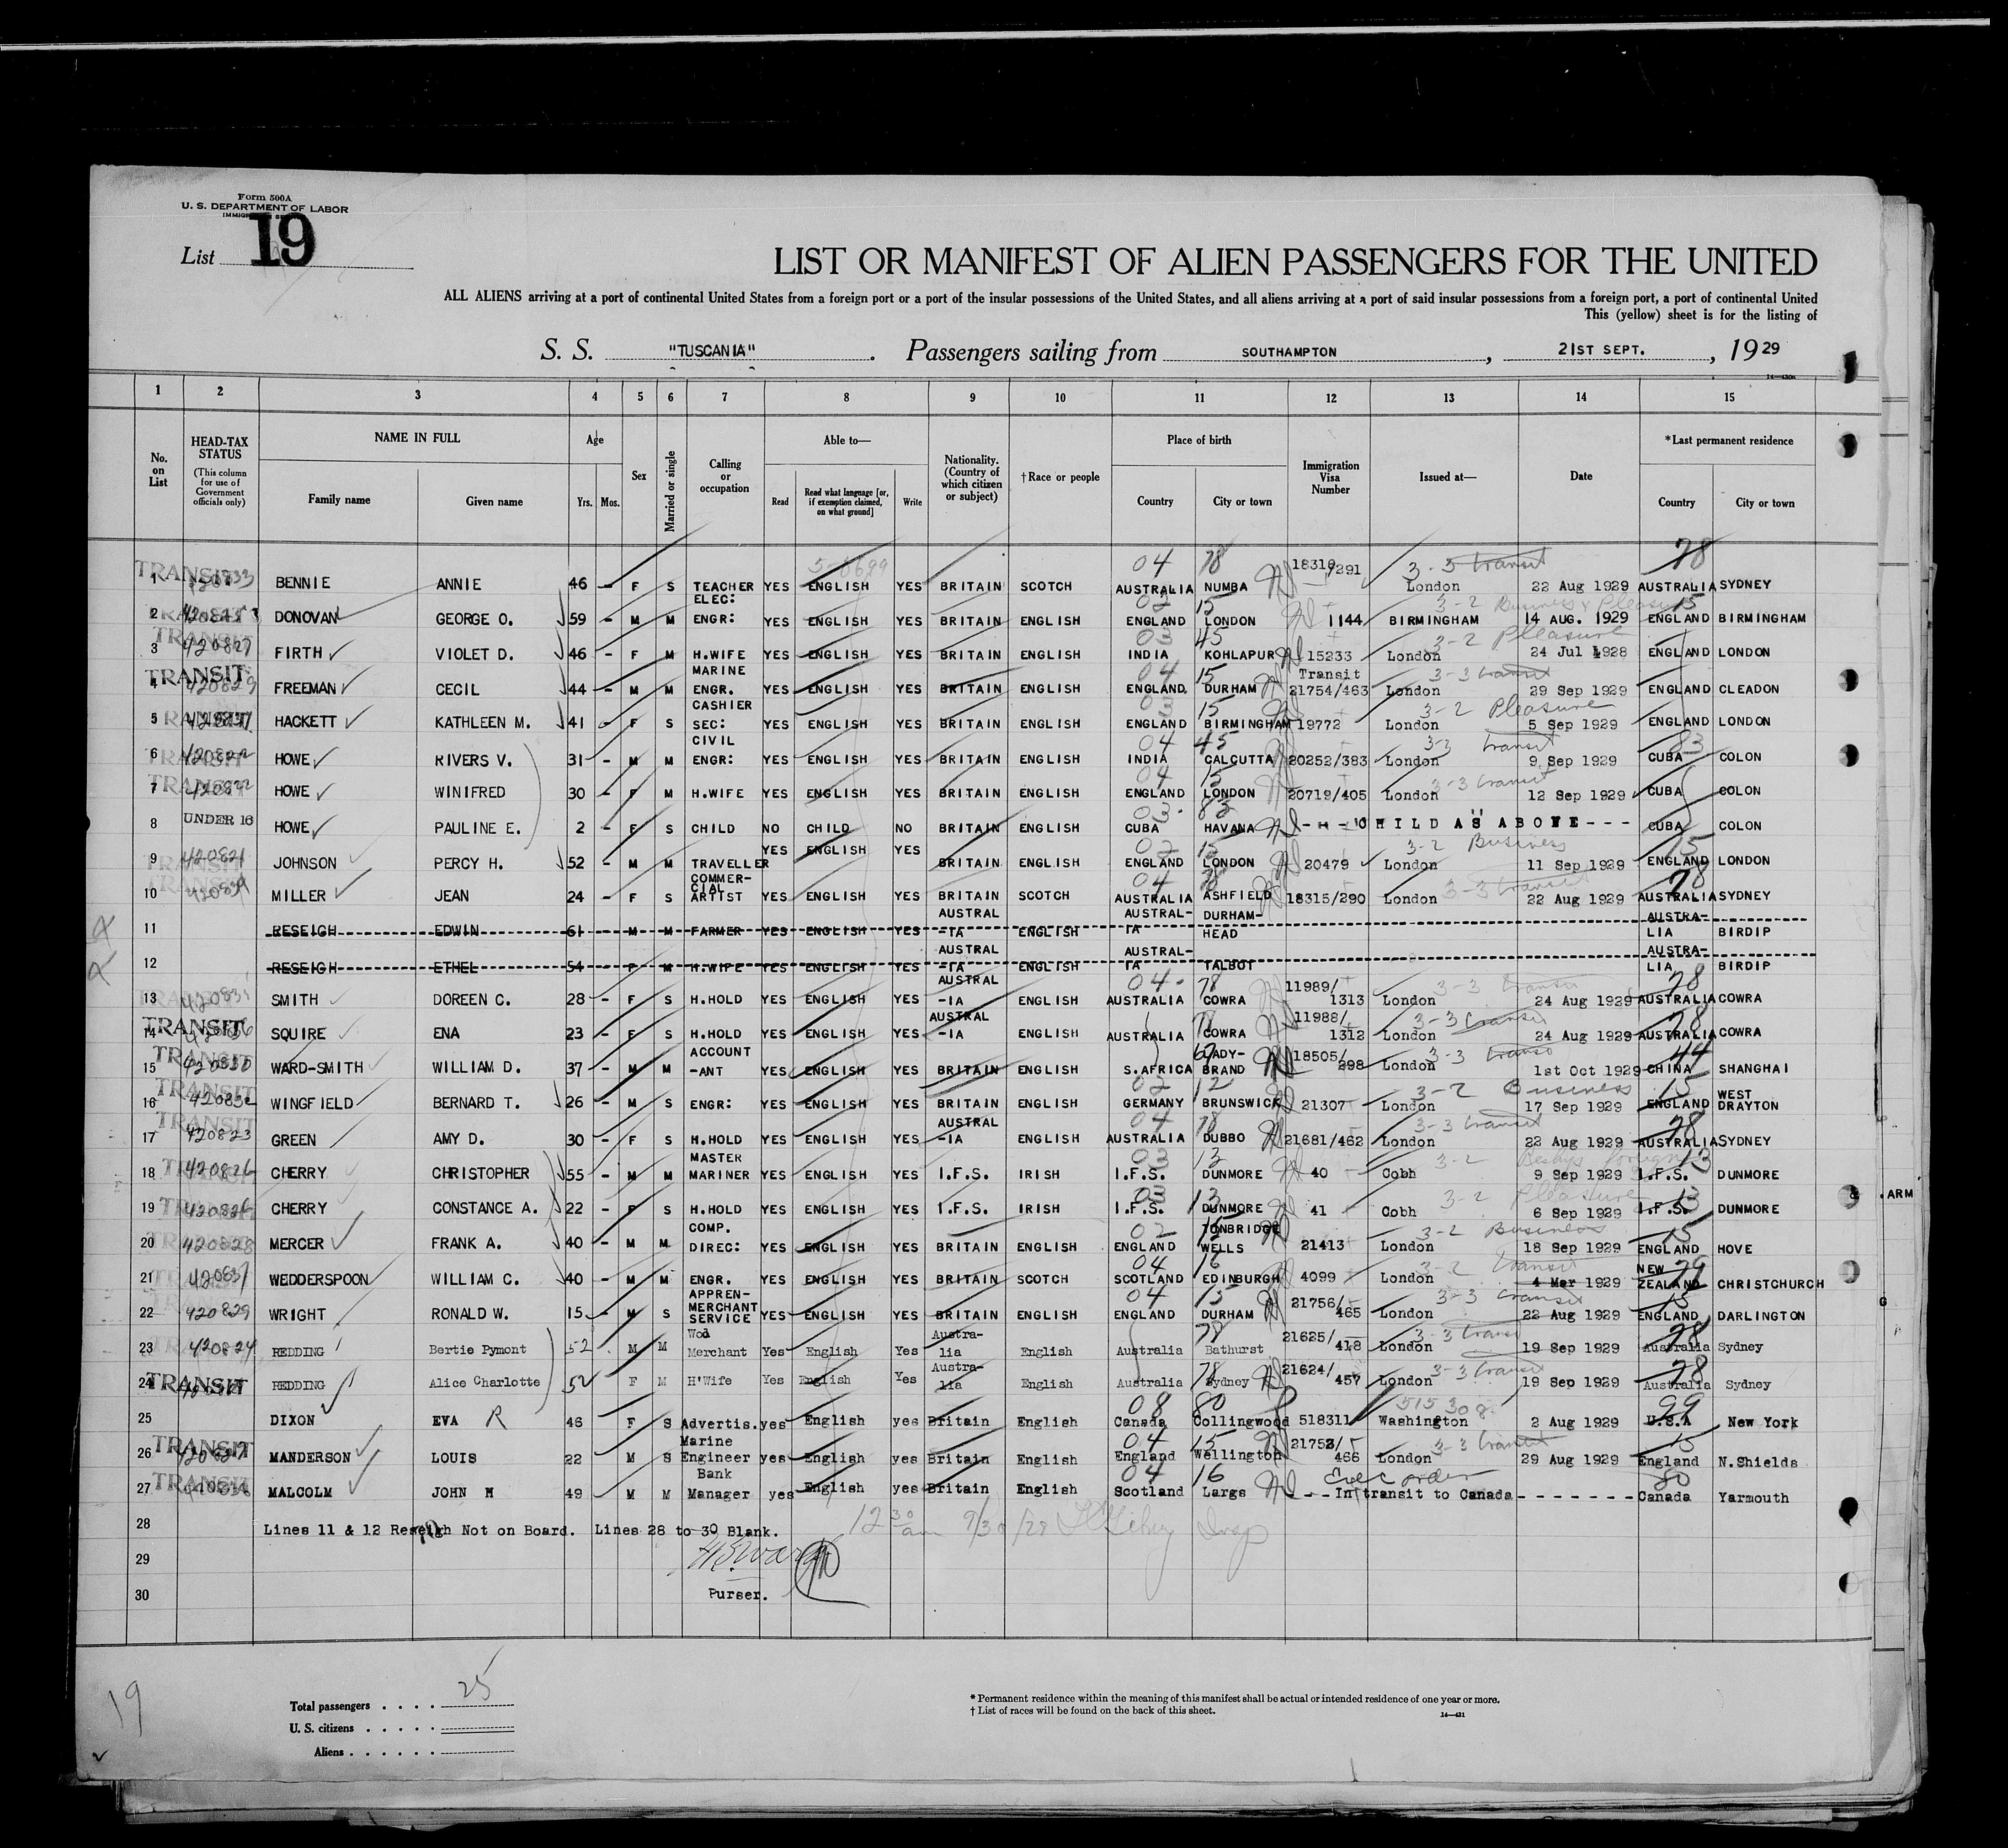 Form 500A
U. S. DEPARTMENT OF LABOR
List 19
LIST OR MANIFEST OF ALIEN PASSENGERS FOR THE UNITED
ALL ALIENS arriving at a port of continental United States from a foreign port or a port of the insular possessions of the United States, and all aliens arriving at a port of said insular possessions from a foreign port, a port of continental United
This (yellow) sheet is for the listing of
S. S. "TUSCANIA". Passengers sailing from SOUTHAMPTON, 21ST SEPT., 1929
1 2 3 4 5 6 7 8 9 10 11 12 13 14 15
No. on List
HEAD-TAX STATUS (This column for use of Government officials only)
NAME IN FULL
Family name Given name
Age
Yrs. Mos.
Sex
Married or single
Calling or occupation
Able to—
Read Read what language [or, if exemption claimed, on what ground] Write
Nationality. (Country of which citizen or subject)
†Race or people
Place of birth
Country City or town
Immigration Visa Number
Issued at—
Date
*Last permanent residence
Country City or town
1 TRANSIT BENNIE ANNIE 46 - F S TEACHER YES ENGLISH YES BRITAIN SCOTCH 04 78 AUSTRALIA NUMBA 18310/291 3-3 transit London 22 Aug 1929 78 AUSTRALIA SYDNEY
2 DONOVAN GEORGE O. 59 - M M ELEC: ENGR: YES ENGLISH YES BRITAIN ENGLISH 02 15 ENGLAND LONDON 1144 3-2 Business & Pleasure BIRMINGHAM 14 AUG. 1929 15 ENGLAND BIRMINGHAM
3 TRANSIT 420827 FIRTH VIOLET D. 46 - F M H.WIFE YES ENGLISH YES BRITAIN ENGLISH 03 45 INDIA KOHLAPUR 15233 3-2 Pleasure London 24 Jul 1928 ENGLAND LONDON
4 TRANSIT FREEMAN CECIL 44 - M M MARINE ENGR. YES ENGLISH YES BRITAIN ENGLISH 04 15 ENGLAND. DURHAM Transit 21754/463 3-3 transit London 29 Sep 1929 ENGLAND CLEADON
5 TRANSIT HACKETT KATHLEEN M. 41 - F S CASHIER SEC: YES ENGLISH YES BRITAIN ENGLISH 03 15 ENGLAND BIRMINGHAM 19772 3-2 Pleasure London 5 Sep 1929 ENGLAND LONDON
6 TRANSIT HOWE RIVERS V. 31 - M M CIVIL ENGR: YES ENGLISH YES BRITAIN ENGLISH 04 45 INDIA CALCUTTA 20252/383 3-3 transit London 9 Sep 1929 83 CUBA COLON
7 TRANSIT 420822 HOWE WINIFRED 30 - F M H.WIFE YES ENGLISH YES BRITAIN ENGLISH 04 15 ENGLAND LONDON 20719/405 3-3 transit London 12 Sep 1929 CUBA COLON
8 UNDER 16 HOWE PAULINE E. 2 - F S CHILD NO CHILD NO BRITAIN ENGLISH 03 83 CUBA HAVANA - - - CHILD AS ABOVE - - - CUBA COLON
9 420821 JOHNSON PERCY H. 52 - M M TRAVELLER YES ENGLISH YES BRITAIN ENGLISH 02 15 ENGLAND LONDON 20479 3-2 Business London 11 Sep 1929 15 ENGLAND LONDON
10 MILLER JEAN 24 - F S COMMER-CIAL ARTIST YES ENGLISH YES BRITAIN SCOTCH 04 78 AUSTRALIA ASHFIELD 18315/290 3-3 transit London 22 Aug 1929 78 AUSTRALIA SYDNEY
11 RESEIGH EDWIN 61 - M M FARMER YES ENGLISH YES AUSTRAL-IA ENGLISH AUSTRAL-IA DURHAM-HEAD AUSTRA-LIA BIRDIP
12 RESEIGH ETHEL 54 - F M H.WIFE YES ENGLISH YES AUSTRAL-IA ENGLISH AUSTRAL-IA TALBOT AUSTRA-LIA BIRDIP
13 SMITH DOREEN C. 28 - F S H.HOLD YES ENGLISH YES AUSTRAL-IA ENGLISH 04 78 AUSTRALIA COWRA 11989/1313 3-3 transit London 24 Aug 1929 78 AUSTRALIA COWRA
14 TRANSIT SQUIRE ENA 23 - F S H.HOLD YES ENGLISH YES AUSTRAL-IA ENGLISH AUSTRALIA 78 COWRA 11988/1312 3-3 transit London 24 Aug 1929 78 AUSTRALIA COWRA
15 TRANSIT 420830 WARD-SMITH WILLIAM D. 37 - M M ACCOUNT-ANT YES ENGLISH YES BRITAIN ENGLISH S.AFRICA LADY-BRAND 18505/298 3-3 London 1st Oct 1929 44 CHINA SHANGHAI
16 TRANSIT 420832 WINGFIELD BERNARD T. 26 - M S ENGR: YES ENGLISH YES BRITAIN ENGLISH 02 12 GERMANY BRUNSWICK 21307 3-2 Business London 17 Sep 1929 15 ENGLAND WEST DRAYTON
17 TRANSIT 420823 GREEN AMY D. 30 - F S H.HOLD YES ENGLISH YES AUSTRAL-IA ENGLISH 04 78 AUSTRALIA DUBBO 21681/462 3-3 transit London 22 Aug 1929 78 AUSTRALIA SYDNEY
18 420826 CHERRY CHRISTOPHER 55 - M M MASTER MARINER YES ENGLISH YES I.F.S. IRISH 03 13 I.F.S. DUNMORE 40 3-2 Cobh 9 Sep 1929 13 I.F.S. DUNMORE
19 420826 CHERRY CONSTANCE A. 22 - F S H.HOLD YES ENGLISH YES I.F.S. IRISH 03 13 I.F.S. DUNMORE 41 3-2 Pleasure Cobh 6 Sep 1929 13 I.F.S. DUNMORE
20 420828 MERCER FRANK A. 40 - M M COMP. DIREC: YES ENGLISH YES BRITAIN ENGLISH 02 15 ENGLAND TONBRIDGE WELLS 21413 3-2 Business London 18 Sep 1929 15 ENGLAND HOVE
21 420837 WEDDERSPOON WILLIAM C. 40 - M M ENGR. YES ENGLISH YES BRITAIN SCOTCH 04 16 SCOTLAND EDINBURGH 4099 3-2 transit London 4 Mar 1929 79 NEW ZEALAND CHRISTCHURCH
22 420829 WRIGHT RONALD W. 15 - M S APPREN-MERCHANT SERVICE YES ENGLISH YES BRITAIN ENGLISH 04 15 ENGLAND DURHAM 21756/465 3-3 transit London 22 Aug 1929 15 ENGLAND. DARLINGTON
23 420824 REDDING Bertie Pymont 52 M M Wool Merchant Yes English Yes Austra-lia English Australia 78 Bathurst 21625/418 3-3 transit London 19 Sep 1929 78 Australia Sydney
24 TRANSIT REDDING Alice Charlotte 52 F M H'Wife Yes English Yes Austra-lia English Australia 78 Sydney 21624/457 3-3 transit London 19 Sep 1929 78 Australia Sydney
25 DIXON EVA R 46 F S Advertis. yes English yes Britain English 08 80 Canada Collingwood 518311 Washington 2 Aug 1929 99 U.S.A New York
26 TRANSIT MANDERSON LOUIS 22 M S Marine Engineer yes English yes Britain English 04 15 England Wellington 21753/466 3-3 transit London 29 Aug 1929 15 England N.Shields
27 TRANSIT MALCOLM JOHN M 49 M M Bank Manager yes English yes Britain English 04 16 Scotland Largs Exec order - - - In transit to Canada - - - - - - - Canada 80 Yarmouth
28 Lines 11 & 12 Reseigh Not on Board. Lines 28 to 30 Blank. 12 30 am 9/30/29
29
30 Purser.
19
Total passengers . . . . 25
U. S. citizens . . . . .
Aliens . . . . . .
* Permanent residence within the meaning of this manifest shall be actual or intended residence of one year or more.
† List of races will be found on the back of this sheet.
14—431
ARM